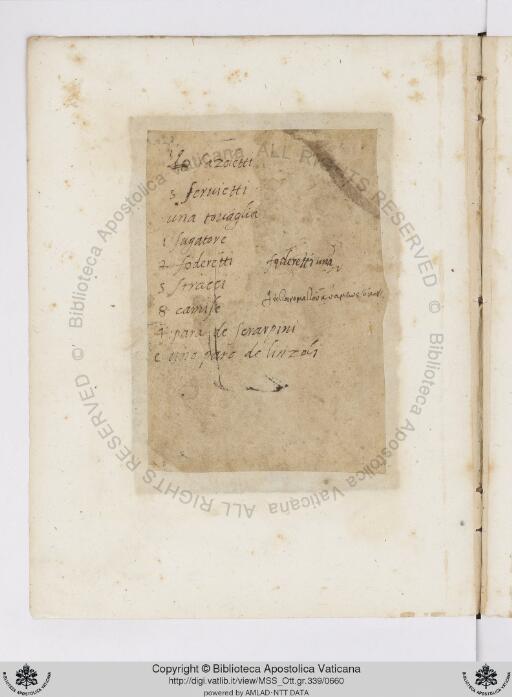 azoletti
5 servietti
una tovaglia
1 sugatore
2 foderetti foderetti una
5 strazzi
8 camise
4 para de scarpini
e uno paro de linzoli
Copyright © Biblioteca Apostolica Vaticana
http://digi.vatlib.it/view/MSS_Ott.gr.339/0660
powered by AMLAD-NTT DATA
© Biblioteca Apostolica Vaticana ALL RIGHTS RESERVED
© Biblioteca Apostolica Vaticana ALL RIGHTS RESERVED